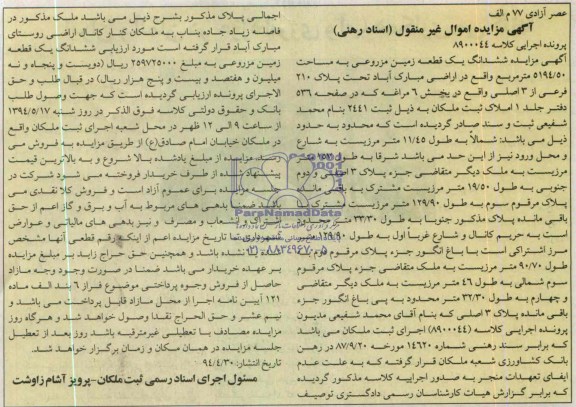 عصر آزادی ۷۷ م الف
آگهی مزایده اموال غیر منقول (اسناد رهنی)
پرونده اجرایی کلاسه ۸۹۰۰۰۴۴
آگهی مزایده ششدانگ یک قطعه زمین مزروعی به مساحت
۵۱۹۴/۵۰ مترمربع واقع در اراضی مبارک آباد تحت پلاک ۲۱۰
فرعی از ۳ اصلی واقع در بخش ۶ مراغه که در صفحه ۵۳۶
دفتر جلد ۱ املاک ثبت ملکان به ذیل ثبت ۲۴۴۱ بنام محمد
شفیعی ثبت و سند صادر گردیده است که محدود به حدود
ذیل می باشید: شمالاً به طول ۱۱/۴۵ متر مرزیست به شارع
و محل ورود نیز از این حد می باشد شرقا به طول
مرزیست به ملک دیگر متقاضی جزء پلاک ۳ اصلی و دوم
جنوبی به طول ۱۹/۵۰ متر مرزیست مشترک به باقی مانده
پلاک مرقوم سوم به طول ۱۲۹/۹۰ متر مرزیست مشترک با
باقی مانده پلاک مذکور جنوبا به طول ۳۳/۳۰ متر محدود
است به حریم کانال و شارع غربا اول به طول
مرز اشتراکی است با باغ انگور جزء پلاک مرقوم دوم
۹۰/۷۰ متر مرزیست به ملک متقاضی جزء پلاک مرقوم
سوم شمالی به طول ۴۶ متر مرزیست به ملک دیگر متقاضی
و چهارم به طول ۳۲/۳۰ متر محدود به پی باغ انگور جزء
باقی مانده پلاک ۳ اصلی که بنام آقای محمد شفیعی مدیون
پرونده اجرایی کلاسه (۸۹۰۰۰۴۴) اجرای ثبت ملکان می باشد
که برابر سند رهنی شماره ۱۴۶۲۰ مورخه ۸۷/۹/۲۰ در رهن
بانک کشاورزی شعبه ملکان قرار گرفته که به علت عدم
ایفای تعهدات منجر به صدور اجراییه کلاسه مذکور گردیده
که برابر گزارش هیات کارشناسان رسمی دادگستری توصیف
اجمالی پلاک مذکور بشرح ذیل می باشد ملک مذکور در
فاصله زیاد جاده بناب به ملکان کنار کانال اراضی روستای
مبارک آباد قرار گرفته است مورد ارزیابی ششدانگ یک قطعه
زمین مزروعی به مبلغ ۲۵۹۷۲۵۰۰۰ ریال (دویست و پنجاه و نه
میلیون و هفتصد و بیست و پنج هزار ریال) در قبال طلب و حق
الاجرای پرونده ارزیابی گردیده است که جهت وصول طلب
بانک و حقوق دولتی کلاسه فوق الذکر در روز شنبه ۱۳۹۴/۵/۱۷
از ساعت ۹ الی ۱۲ ظهر در محل شعبه اجرای ثبت ملکان واقع
در ملکان خیابان امام صادق(ع) از طریق مزایده به فروش می
رسد. مزایده از مبلغ یادشده بالا شروع و به بالاترین قیمت
پیشنهاد شده از طرف خریدار فروخته می شود شرکت در
جلسه مزایده برای عموم آزاد است و فروش کلا نقدی می
باشد ضمنا بدهی های مربوط به آب و برق و گاز اعم از حق
انشعاب و مصرف و نیز بدهی های مالیاتی و عوارض
شهرداری تا تاریخ مزایده اعم از اینکه رقم قطعی آنها مشخص
شده باشد و همچنین حق حراج زاید بر مبلغ مزایده
بر عهده خریدار می باشد ضمنا در صورت وجود وجه مازاد
حاصل از فروش وجوه پرداختی موضوع فراز ۶ بند الف ماده
۱۲۱ آیین نامه اجرا از محل مازاد قابل پرداخت می باشد و
نیم عشر و حق الحراج نقدا وصول خواهد شد و هرگاه روز
مزایده مصادف با تعطیلی غیرمترقبه باشد روز بعد از تعطیل
جلسه مزایده در همان مکان و زمان برگزار خواهد شد.
تاریخ انتشار: ۹۴/۴/۳۰
مسئول اجرای اسناد رسمی ثبت ملکان-پرویز آشام زاوشت
ParsNamadData
۰۲۱-۸۸۳۴۹۶۷۰-۵